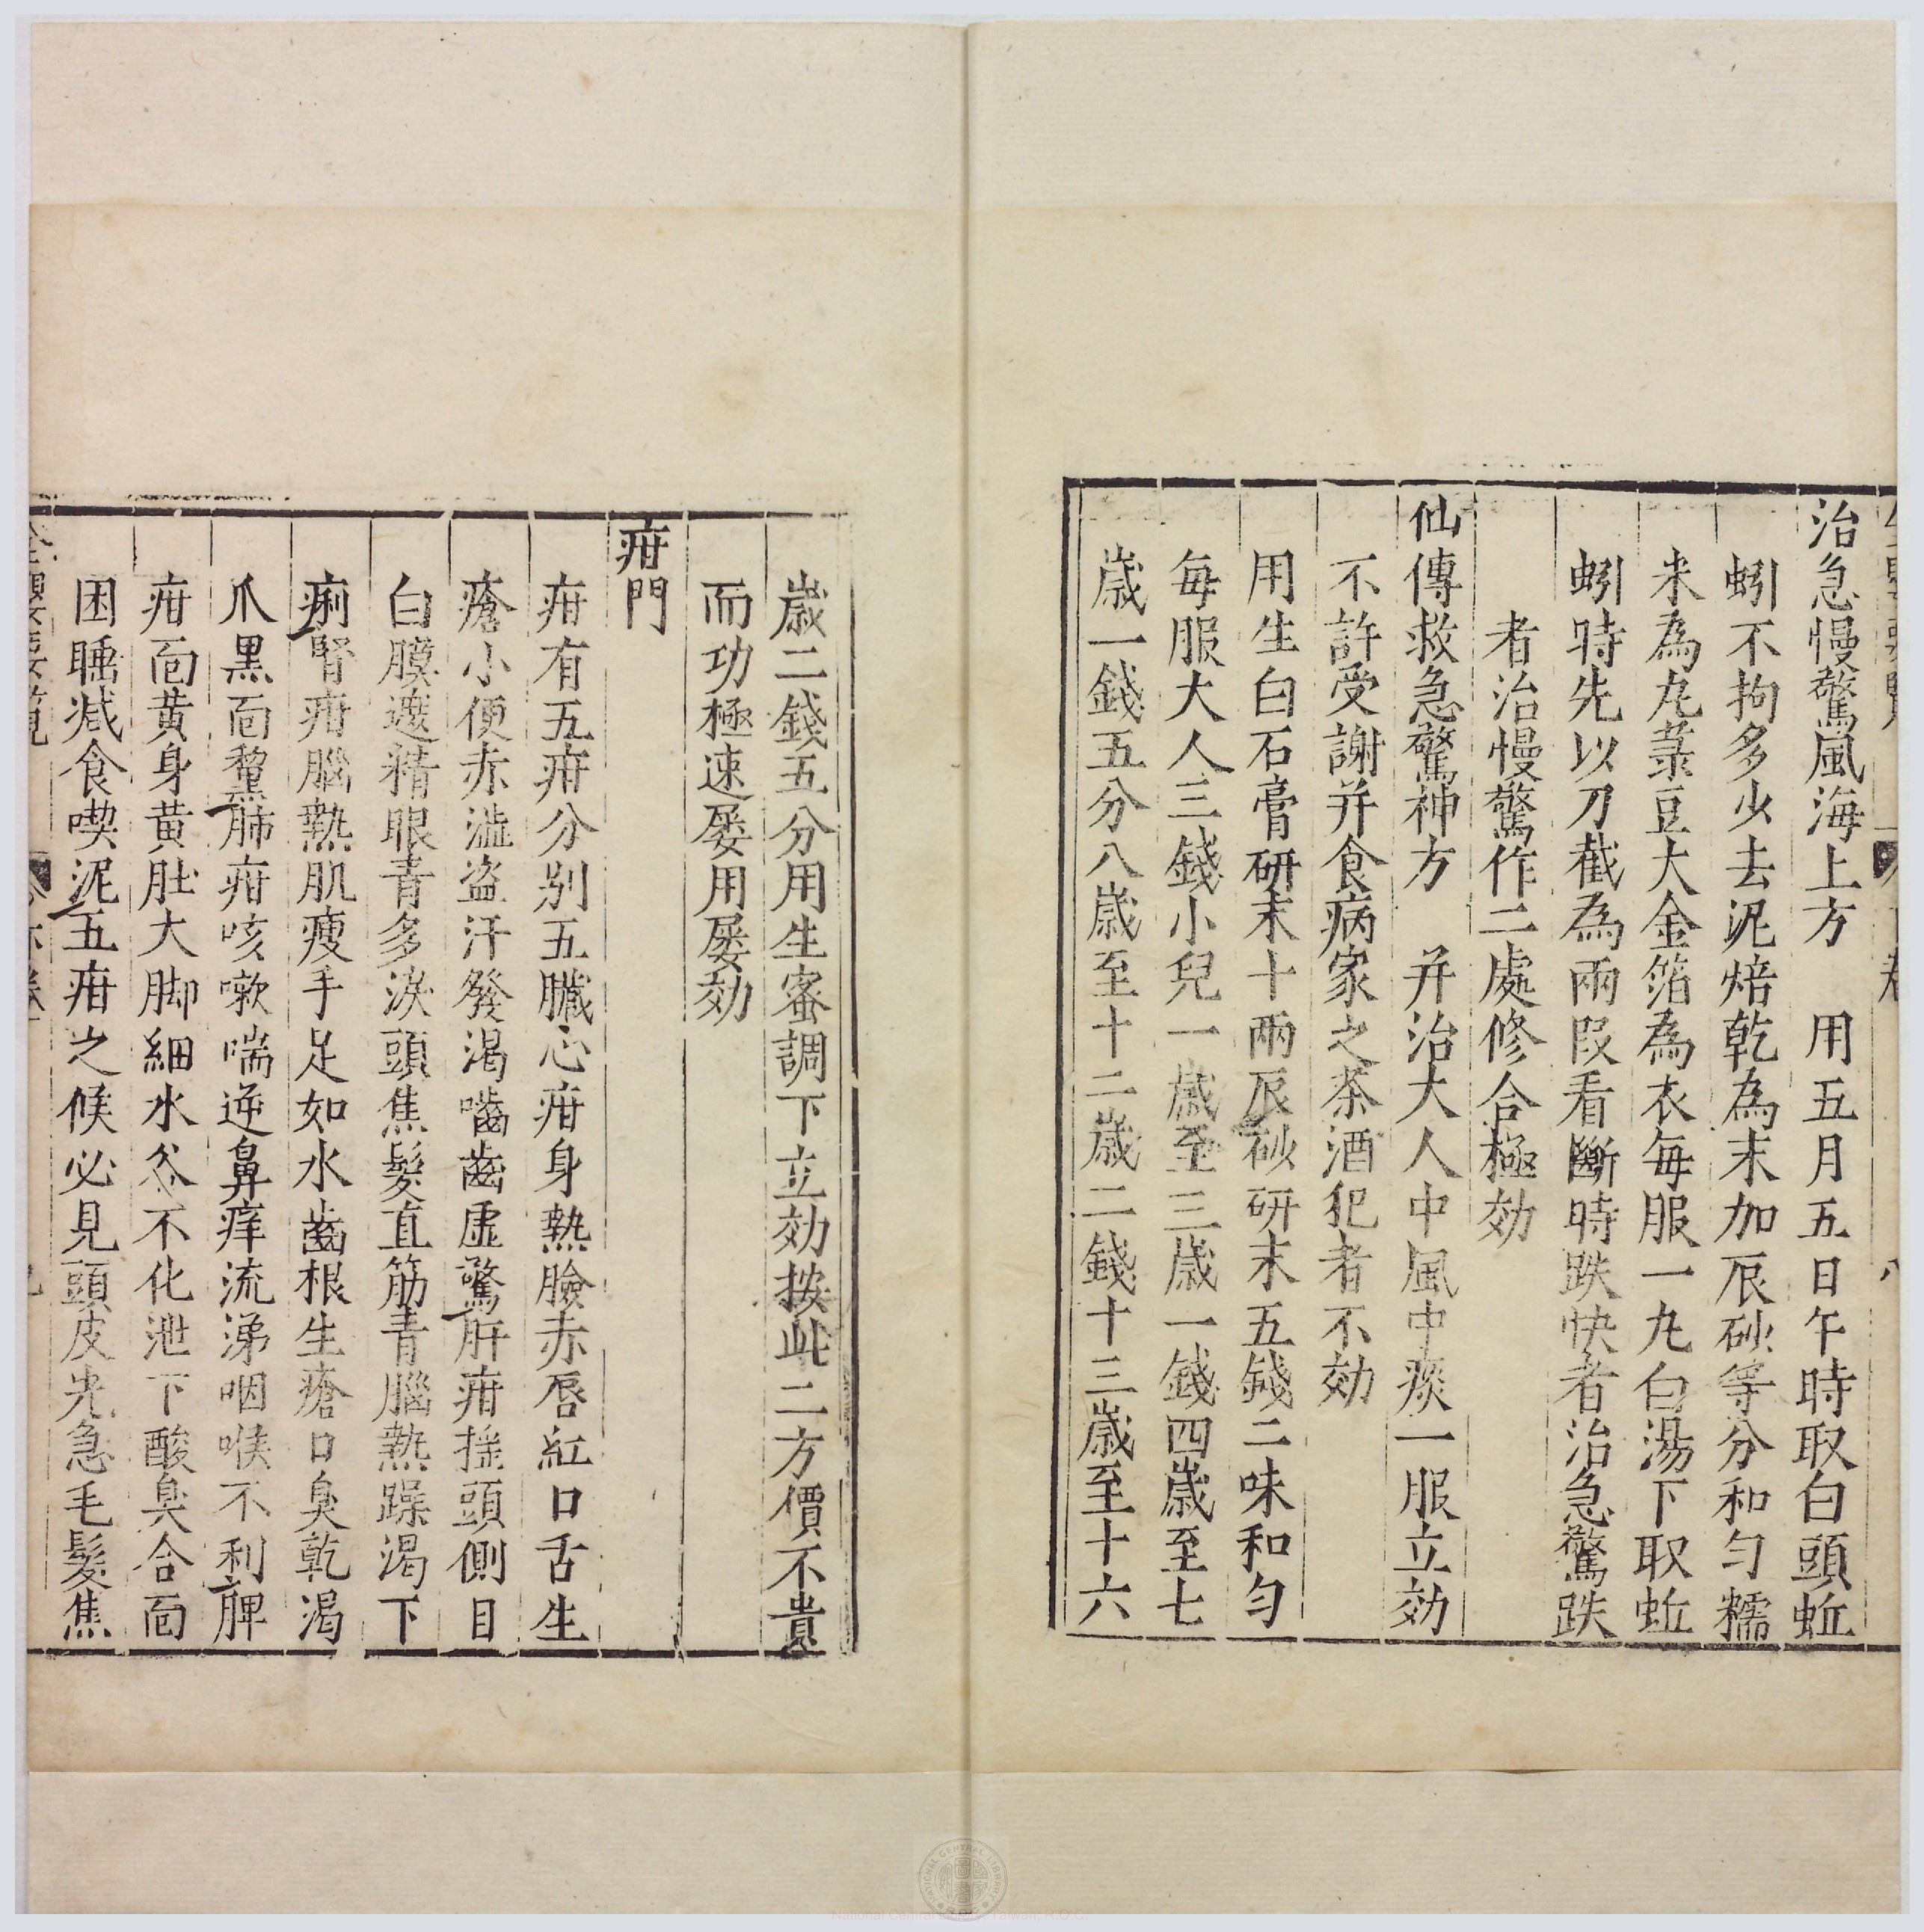 治急慢驚風海上方　用五月五日午時取白頭蚯
蚓不拘多少去泥焙乾為末加辰砂等分和勻糯
米為丸菉豆大金箔為衣每服一丸白湯下取蚯
蚓時先以刀截為兩段看斷時跌快者治急驚跌
者治慢驚作二處修合極効
仙傳救急驚神方　并治大人中風中痰一服立効
不許受謝并食病家之茶酒犯者不効
用生白石膏研末十兩辰砂研末五錢二味和勻
每服大人三錢小兒一歲至三歲一錢四歲至七
歲一錢五分八歲至十二歲二錢十三歲至十六
歲二錢五分用生蜜調下立効按此二方價不貴
而功極速屡用屡効
疳門
疳有五疳分別五臟心疳身熱臉赤唇紅口舌生
瘡小便赤澁盜汗發渴嚙齒虛驚肝疳揺頭側目
白膜遮精眼青多淚頭焦髮直筋青腦熱躁渴下
痢腎疳腦熱肌瘦手足如水齒根生瘡口臭乾渴
爪黑面黧肺疳咳嗽喘逆鼻痒流涕咽喉不利脾
疳面黄身黄肚大脚細水谷不化泄下酸臭合面
困睡减食喫泥五疳之候必見頭皮光急毛髮焦